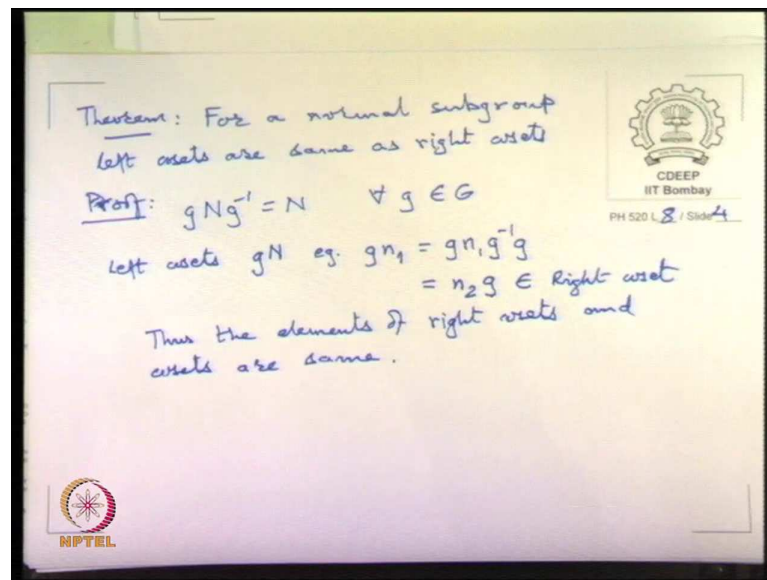 Theorem: For a normal subgroup
left cosets are same as right cosets
CDEEP
IIT Bombay
PH 520 L 8 / Slide 4
Proof: gNg⁻¹ = N ∀ g ∈ G
Left cosets gN eg. gn₁ = gn₁g⁻¹g
= n₂g ∈ Right coset
Thus the elements of right cosets and
cosets are same.
NPTEL